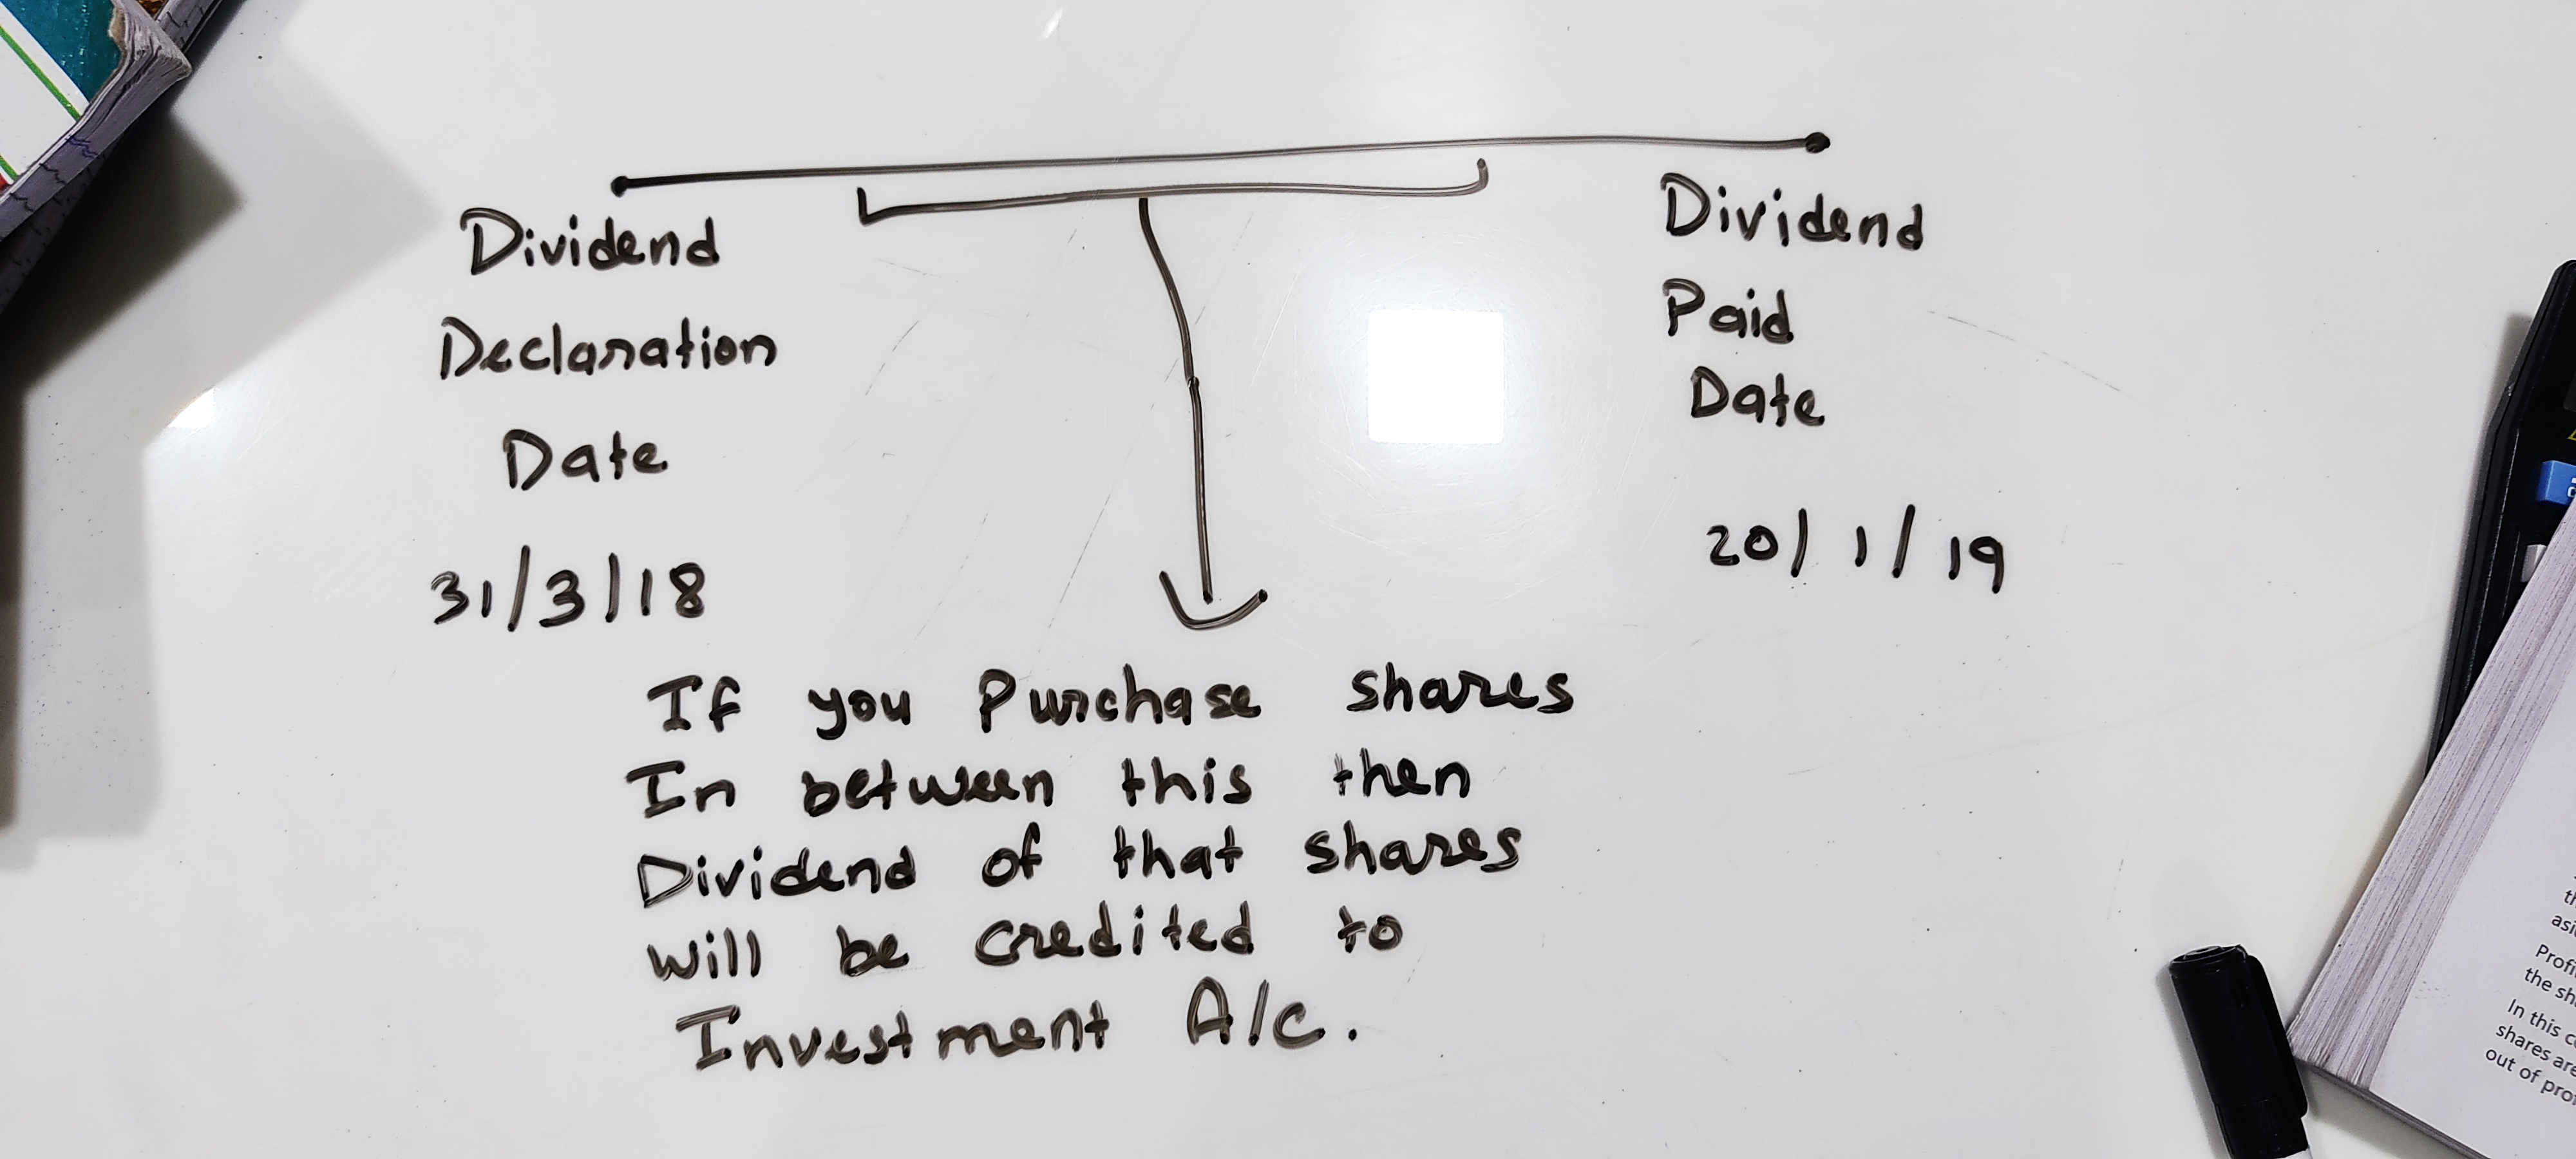 Dividend
Declaration
Date
31/3/18
Dividend
Paid
Date
20/1/19
If you Purchase shares
In between this then
Dividend of that shares
will be credited to
Investment A/c.
Profi
the sh
In this c
shares are
out of pro